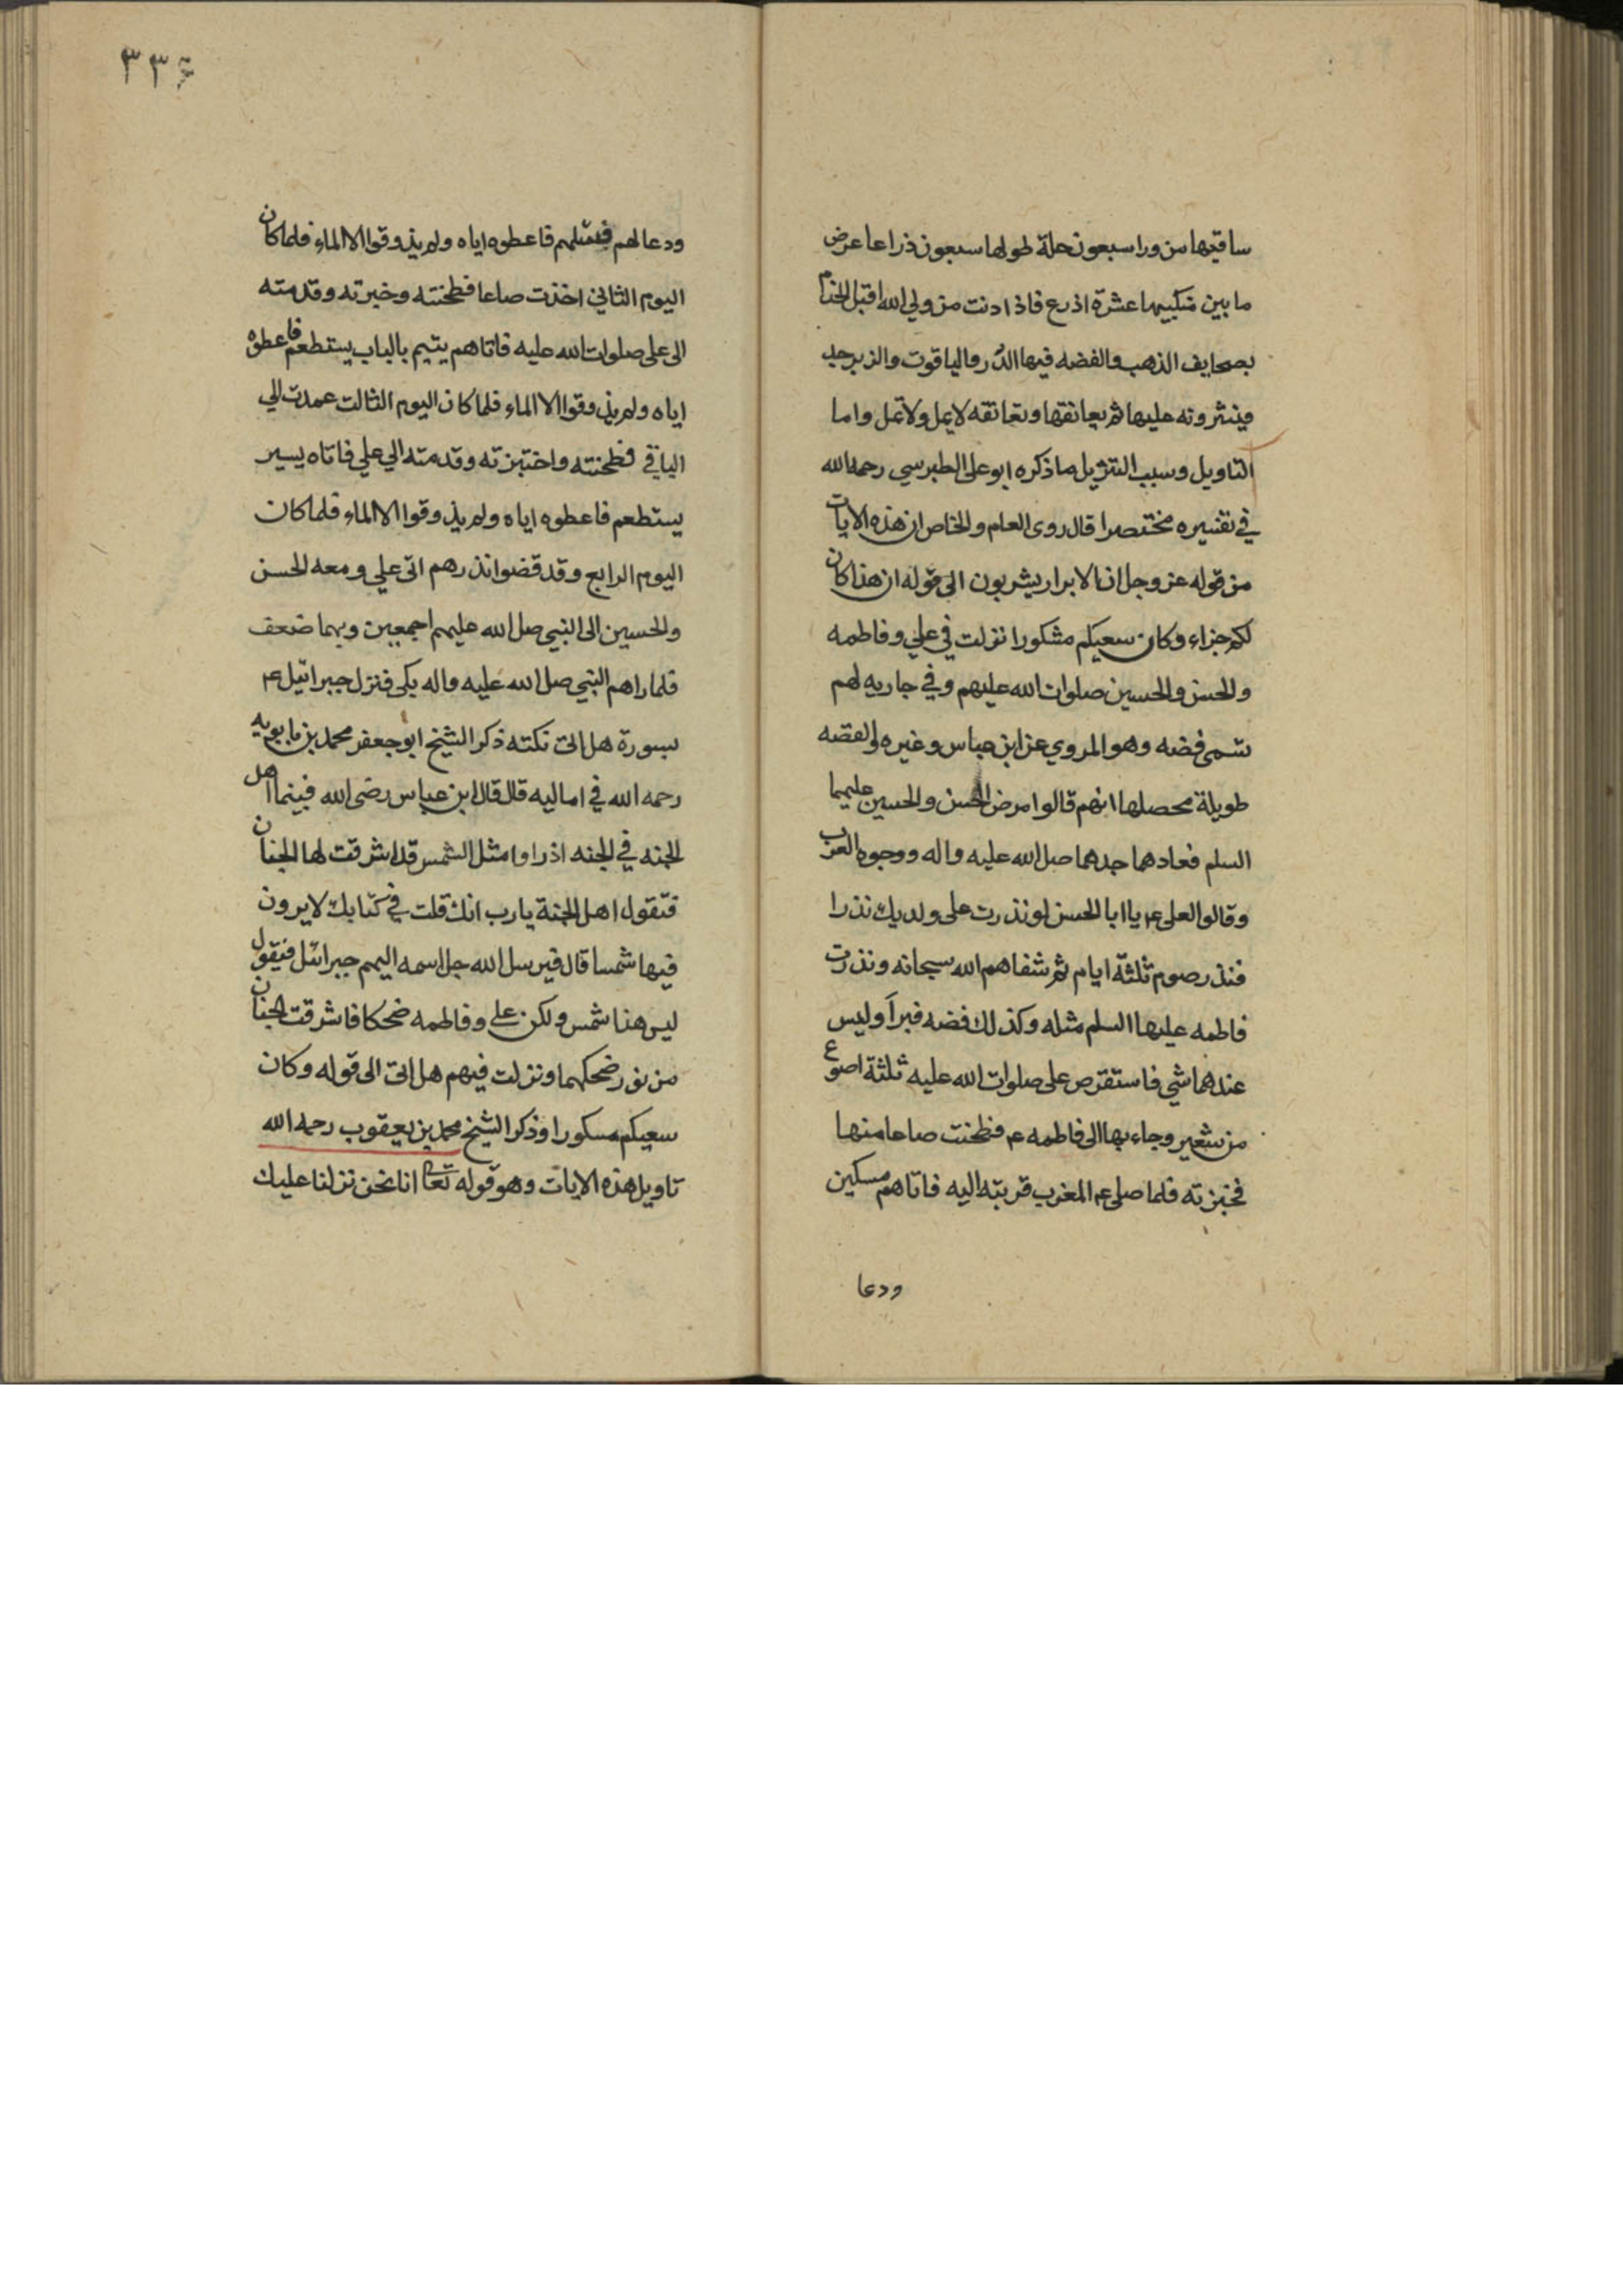 ساقيها من ورا سبعون حلة طولها سبعون ذراعا عرض
ما بين منكبيها عشرة اذرع فاذا ادنت من ولي الله اقبل الخدام
بصحايف الذهب والفضه فيها الدُر والياقوت والزبرجد
فينثرونه عليها ثم يعانقها وتعانقه لا يمل ولا تمل واما
التاويل وسبب التنزيل ما ذكره ابو على الطبرسي رحمه الله
في تفسيره مختصرا قال روى العام والخاص ان هذه الايات
من قوله عز وجل ان الابرار يشربون الى قوله ان هذا كان
لكم جزاء وكان سعيكم مشكورا نزلت في علي وفاطمه
والحسن والحسين صلوات الله عليهم وفي جاريه لهم
تسمى فضه وهو المروي عن ابن عباس وغيره والقصه
طويلة محصلها انهم قالوا مرض الحسن والحسين عليهما
السلم فعادهما جدهما صل الله عليه واله ووجوه العرب
وقالوا لعلى ع يا ابا الحسن لو نذرت على ولديك نذرا
فنذر صوم ثلثة ايام ثم شفاهم الله سبحانه ونذرت
فاطمه عليها السلم مثله وكذلك فضه فبرأ وليس
عندهما شي فاستقرض على صلوات الله عليه ثلثة اصوع
من شعير وجاء بها الى فاطمه ع فطحنت صاعا منها
فخبزته فلما صلى ع المغرب قربته اليه فاتاهم مسكين
ودعا
٣٣٤
ودعا لهم فاعطوه اياه ولم يذوقوا الا الماء فلما كان
اليوم الثاني اخذت صاعا فطحنته وخبزته وقدمته
الى على صلوات الله عليه فاتاهم يتيم بالباب يستطعم فاعطوه
اياه ولم يذوقوا الا الماء فلما كان اليوم الثالث عمدت الي
الباقي فطحنته واختبزته وقدمته الي علي فاتاه يسير
يستطعم فاعطوه اياه ولم يذوقوا الا الماء فلما كان
اليوم الرابع وقد قضوا نذرهم اتى علي ومعه الحسن
والحسين الى النبي صل الله عليهم اجمعين وبهما ضعف
فلما راهم النبي صل الله عليه واله بكى فنزل جبرائيل ع
بسورة هل اتى نكته ذكر الشيخ ابو جعفر محمد بن بابويه
رحمه الله في اماليه قال قال ابن عباس رضى الله فبينما اهل
الجنه في الجنه اذ راوا مثل الشمس قد اشرقت لها الجنان
فتقول اهل الجنة يا رب انك قلت في كتابك لا يرون
فيها شمسا قال فيرسل الله جل اسمه اليهم جبرائل فيقول
ليس هذا شمس ولكن على وفاطمه ضحكا فاشرقت الجنان
من نور ضحكهما ونزلت فيهم هل اتى الى قوله وكان
سعيكم مسكورا وذكر الشيخ محمد بن يعقوب رحمه الله
تاويل هذه الايات وهو قوله تعا انا نحن نزلنا عليك